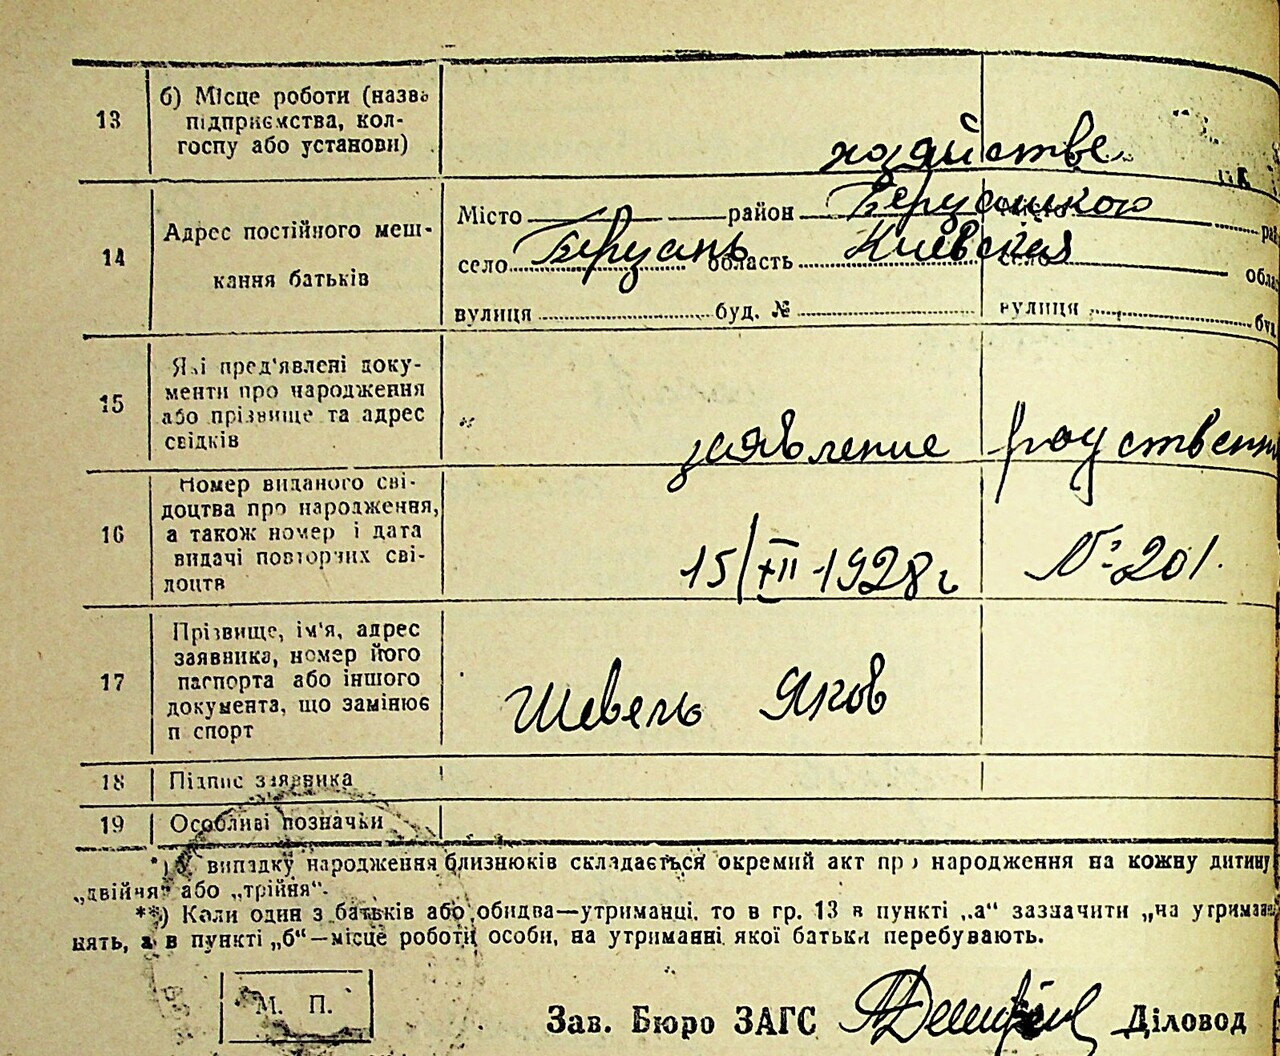 13
б) Місце роботи (назва
підприємства, кол-
госпу або установи)
хозяйстве
14
Адрес постійного меш-
кання батьків
Місто район Березанького
село Березань область Киевская
вулиця буд. №
місто рай
село обла
вулиця буд
15
Які пред'явлені доку-
менти про народження
або прізвище та адрес
свідків
заявление родственн
16
Номер виданого сві-
доцтва про народження,
а також номер і дата
видачі повторних сві-
доцтв
15/XII-1928г № 201.
17
Прізвище, ім'я, адрес
заявника, номер його
паспорта або іншого
документа, що замінює
п спорт
Шевель Яков
18 Підпис заявника
19 Особливі позначки
*) У випадку народження близнюків складається окремий акт про народження на кожну дитину
„двійня" або „трійня".
**) Коли один з батьків або обидва—утриманці, то в гр. 13 в пункті „а" зазначити „на утриман
нять, а в пункті „б"—місце роботи особи, на утриманні якої батьки перебувають.
М. П.
Зав. Бюро ЗАГС Діловод